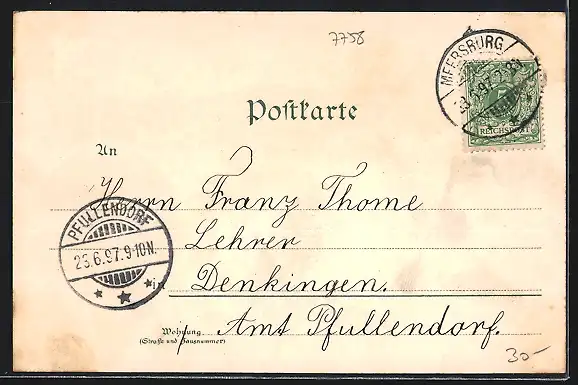 7758
MEERSBURG
REICHSPOST
Postkarte
An
Herrn Franz Thome
Lehrer
in Denkingen.
Amt Pfullendorf.
Wohnung
(Straße und Hausnummer)
PFULLENDORF
23.6.97.9-10N.
30-